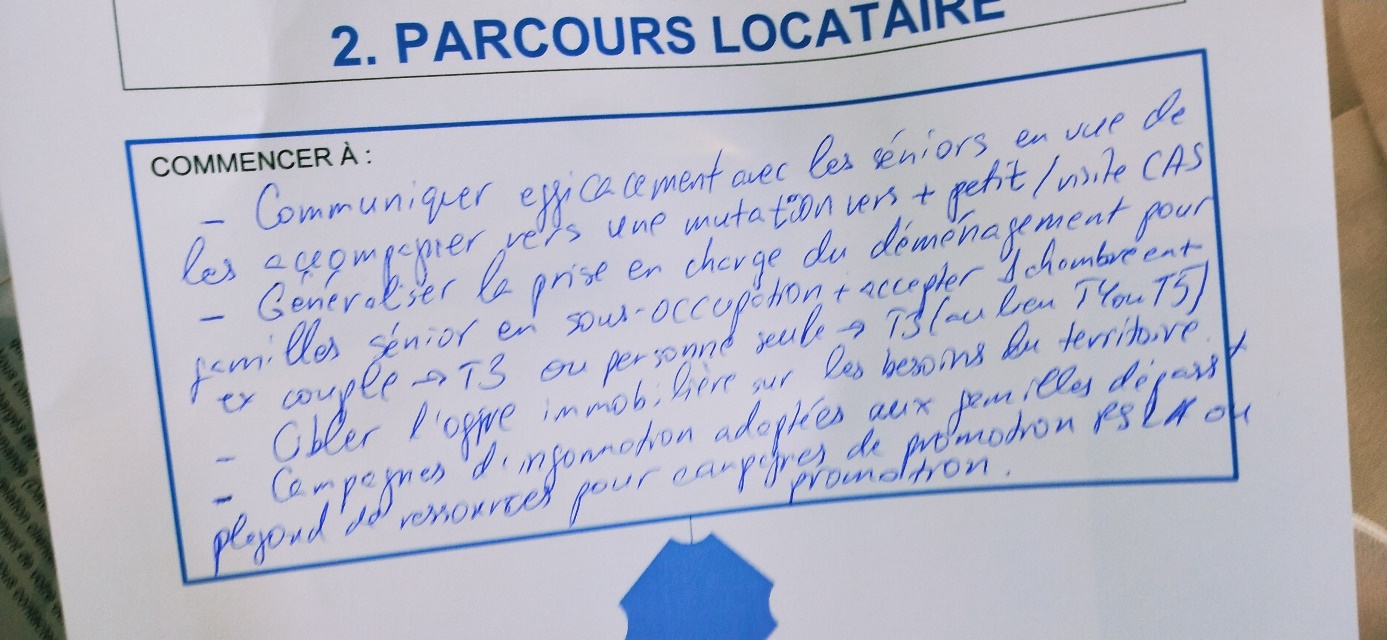 2. PARCOURS LOCATAIRE
COMMENCER À :
- Communiquer efficacement avec les séniors en vue de
les accompagner vers une mutation vers + petit / visite CAS
- Généraliser la prise en charge du déménagement pour
familles sénior en sous-occupation + accepter 1 chambre en +
ex couple → T3 ou personne seule → T3 (au lieu T4 ou T5)
- Cibler l'offre immobilière sur les besoins du territoire.
- Campagnes d'information adaptées aux familles dépass
plafond de ressources pour campagnes de promotion PSLA ou
promotion.